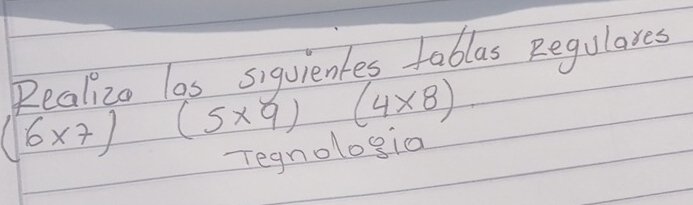 Realizo las siguientes tablas Regulares
(6x7) (5x9) (4x8)
Tegnologia